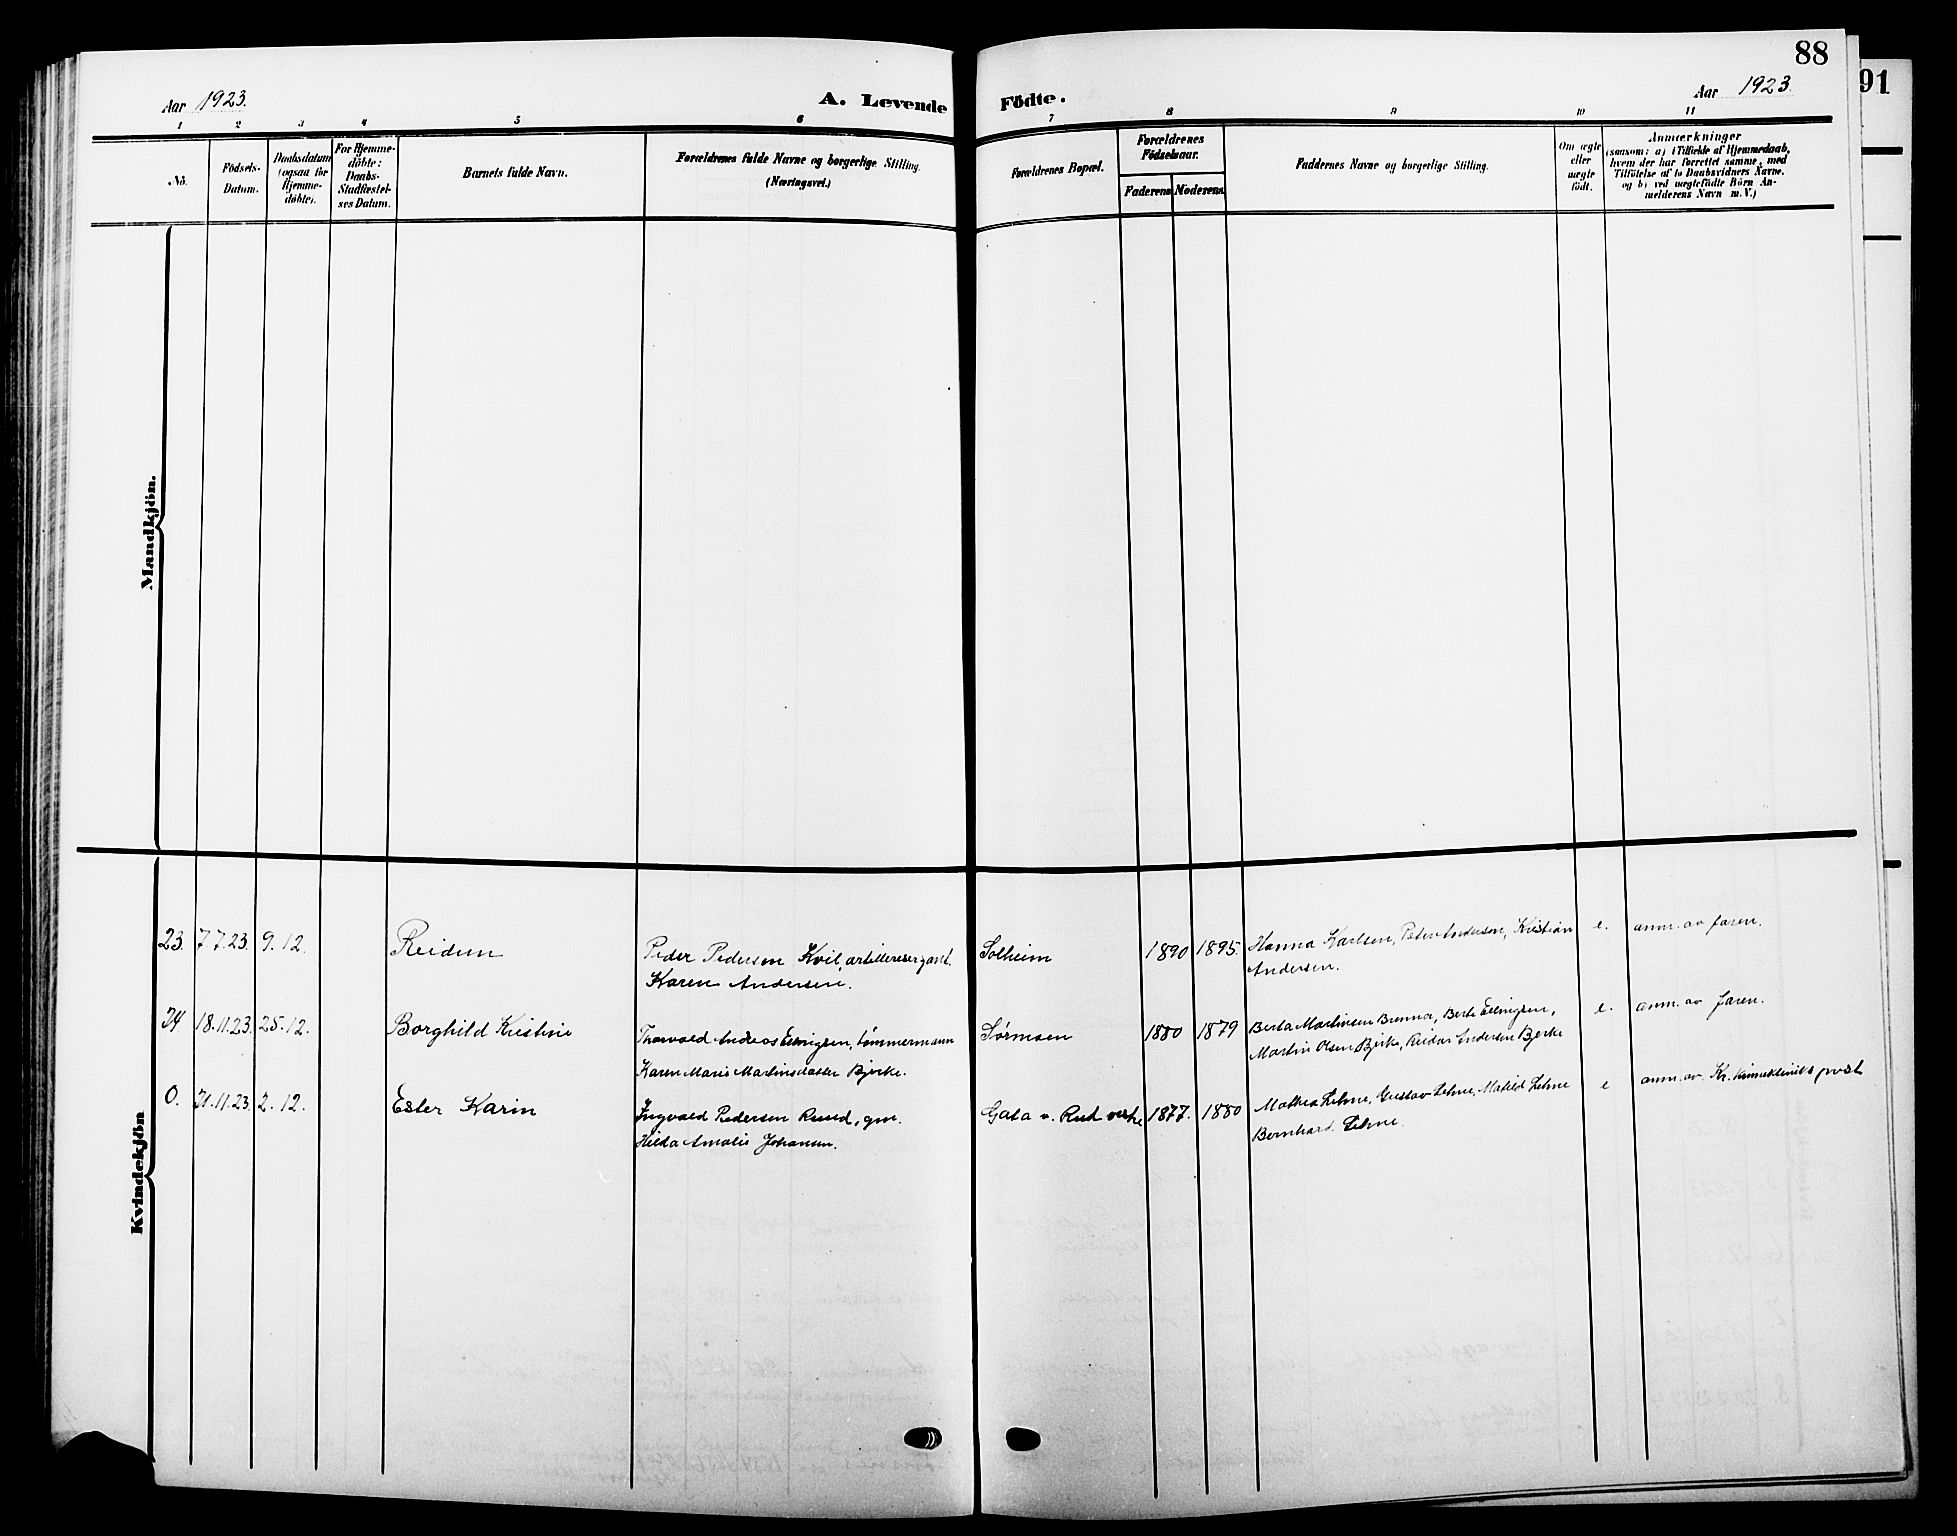 88
91
Aar 1923.
A. Levende
Födte.
Aar 1923
1 2 3 4 5 6 7 8 9 10 11
No.
Födsels-
Datum.
Daabsdatum
(ogsaa for
Hjemme-
döbte).
For Hjemme-
döbte:
Daabs-
Stadfæstel-
ses Datum.
Barnets fulde Navn.
Forældrenes fulde Navne og borgerlige Stilling.
(Næringsvei.)
Forældrenes Bopæl.
Forældrenes
Födselsaar.
Faderens Moderens.
Faddernes Navne og borgerlige Stilling.
Om ægte
eller
uægte
födt.
Anmærkninger
(saasom: a) i Tilfælde af Hjemmedaab,
hvem der har forrettet samme, med
Tilföielse af to Daabsvidners Navne,
og b) ved uægtefödte Börn An-
melderens Navn m. V.)
Mandkjön.
Kvindekjön
23. 7 7.23. 9.12. Reidun
Peder Pedersen Kvil, artillerisergant.
Karen Andersen.
Solheim 1890 1895.
Hanna Karlsen, Peter Andersen, Kristian
Andersen.
e. anm. av faren.
24 18.11.23. 25.12. Borghild Kristine
Thorvald Andreas Ellingsen, tömmermann
Karen Marie Martinsdatter Bjerke.
Sørmoen 1880 1879
Berta Martinsen Brenna, Berte Ellingsen,
Martin Olsen Bjerke, Reidar Andersen Bjerke
e. anm. av faren.
0. 21.11.23. 2.12. Ester Karin
Ingvald Pedersen Ruud, gm.
Hilda Amalie Johansen.
Gata v. Rud vestre 1877. 1880
Mathea Lehne, Gustav Lehne, Matild Lehne
Bernhard Lehne.
e anm. av. Kr. kvinneklinikks prest